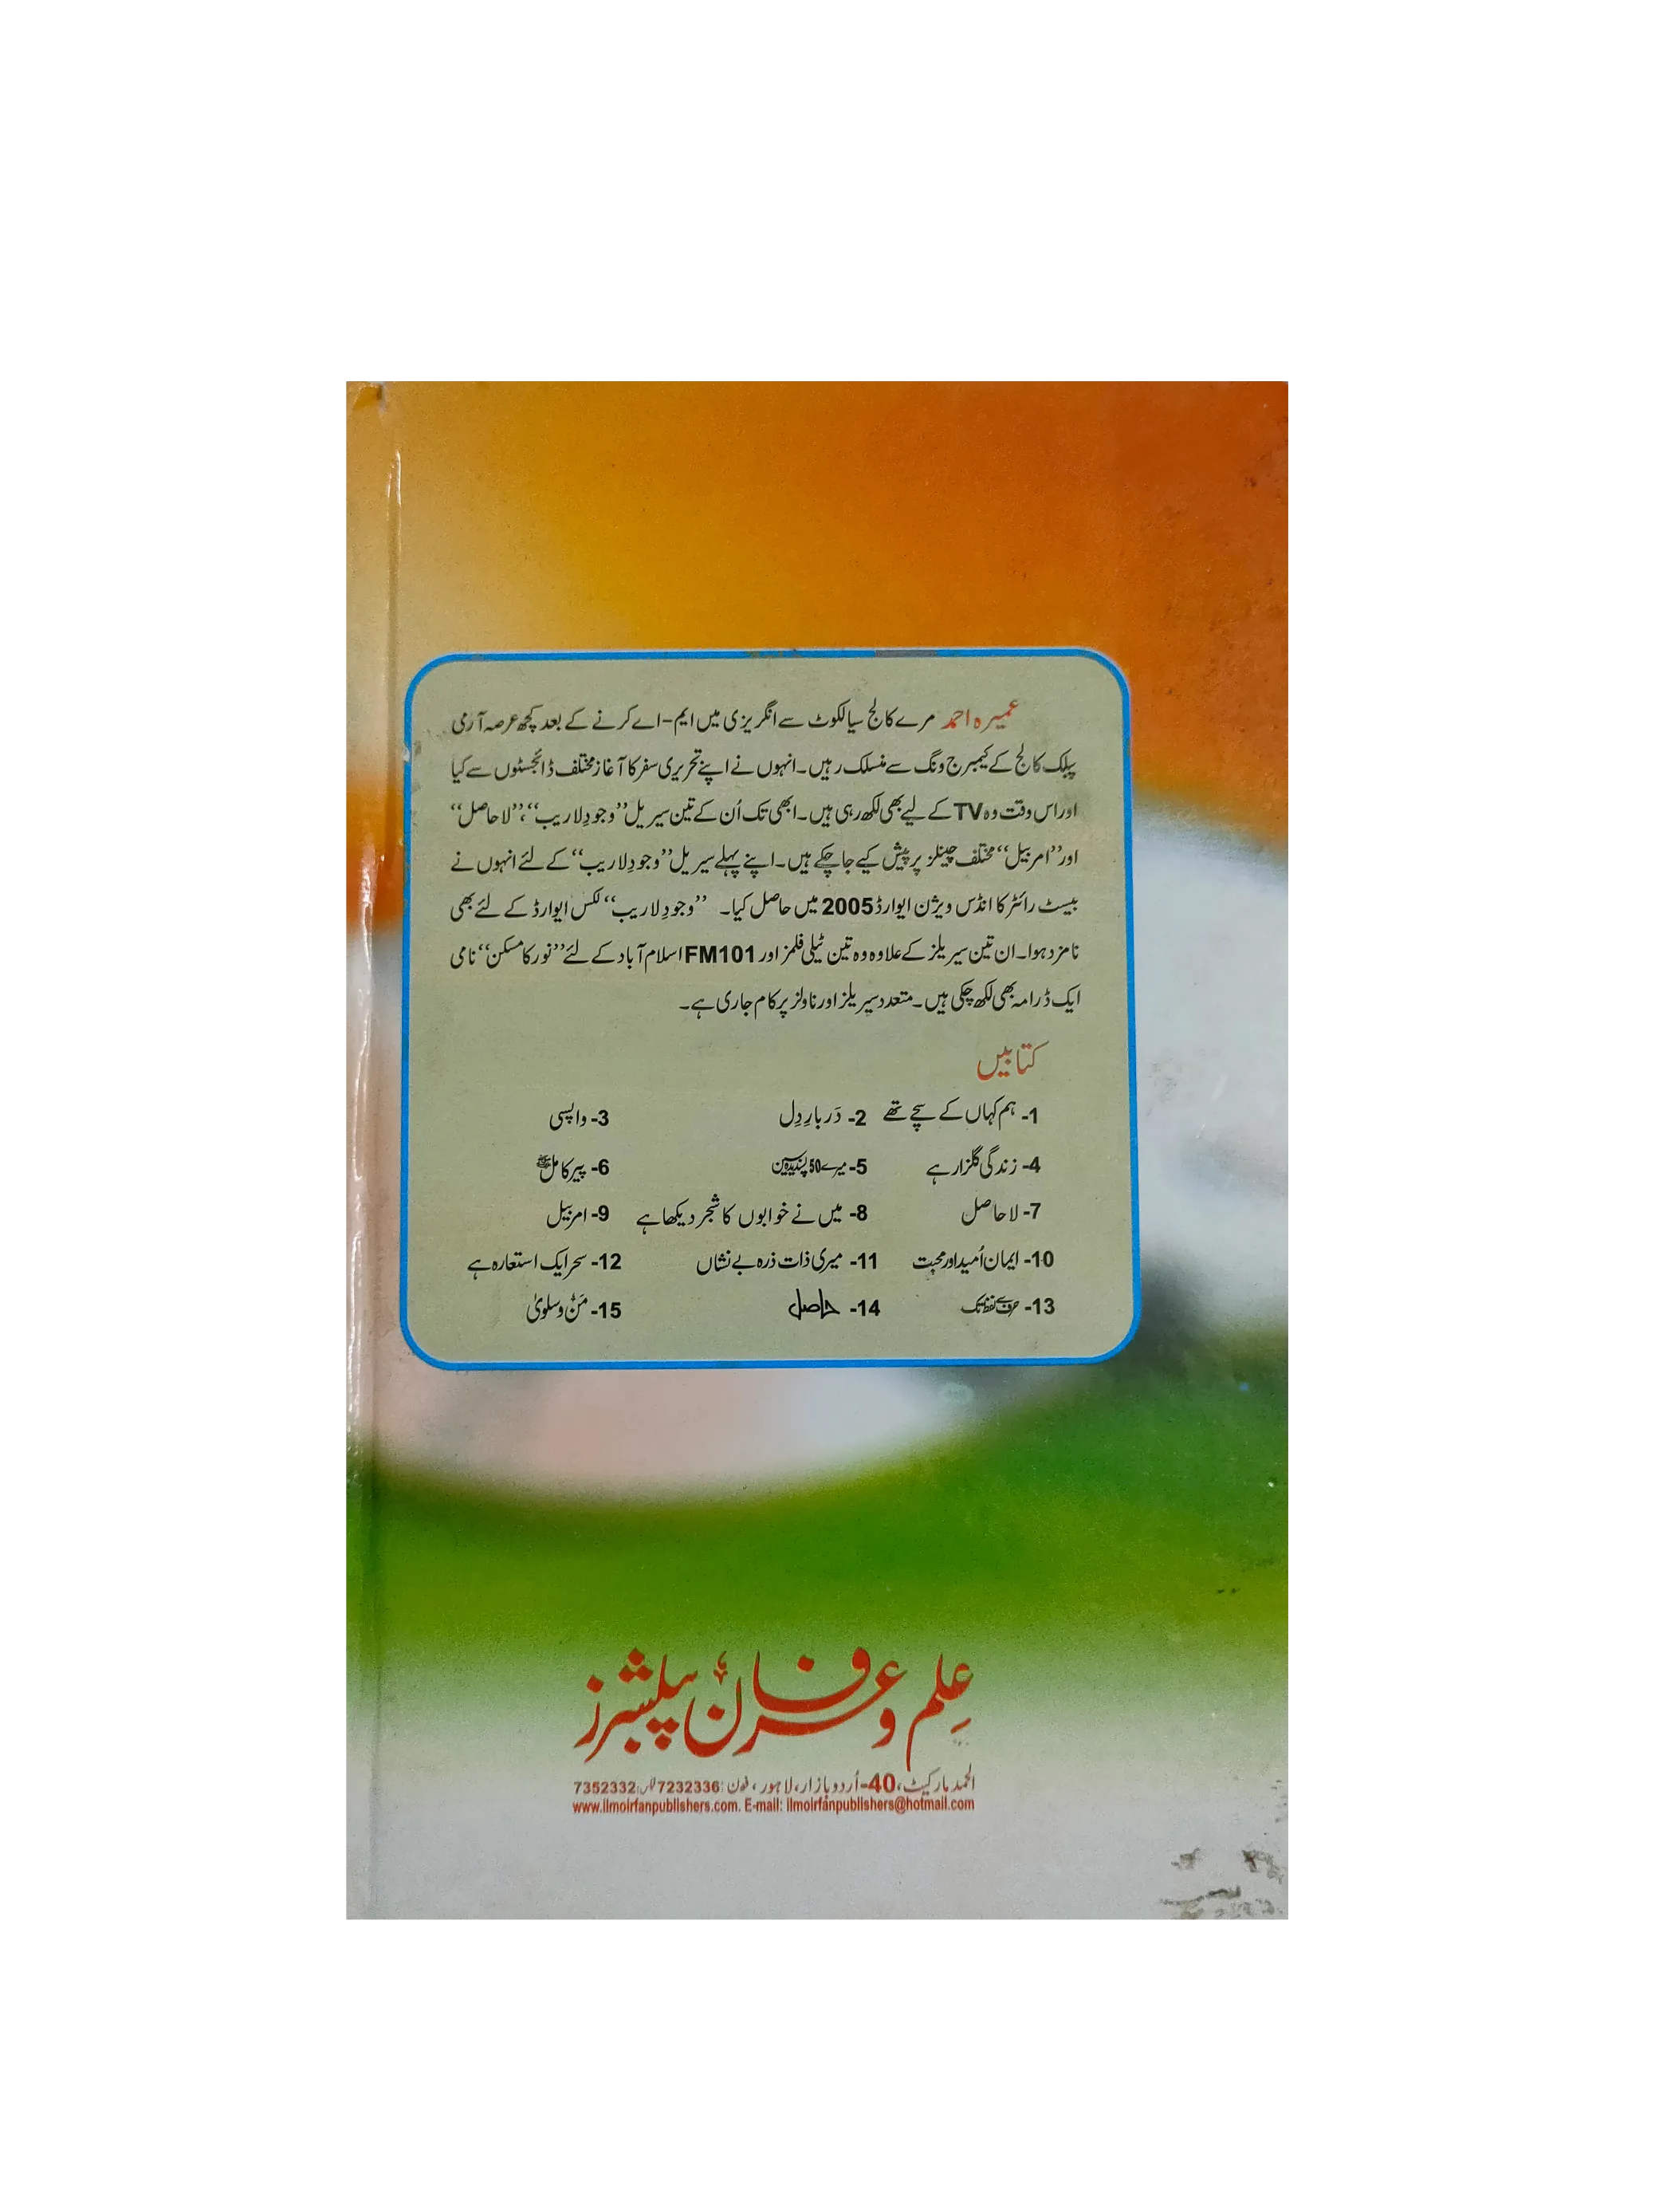 عمیرہ احمد مرے کالج سیالکوٹ سے انگریزی میں ایم-اے کرنے کے بعد کچھ عرصہ آرمی
پبلک کالج کے کیمبرج ونگ سے منسلک رہیں۔ انہوں نے اپنے تحریری سفر کا آغاز مختلف ڈائجسٹوں سے کیا
اور اس وقت وہ TV کے لیے بھی لکھ رہی ہیں۔ ابھی تک اُن کے تین سیریل ”وجودِ لاریب“، ”لاحاصل“
اور ”امربیل“ مختلف چینلز پر پیش کیے جا چکے ہیں۔ اپنے پہلے سیریل ”وجودِ لاریب“ کے لئے انہوں نے
بیسٹ رائٹر کا انڈس ویژن ایوارڈ 2005 میں حاصل کیا۔ ”وجودِ لاریب“ لکس ایوارڈ کے لئے بھی
نامزد ہوا۔ ان تین سیریلز کے علاوہ وہ تین ٹیلی فلمز اور FM101 اسلام آباد کے لئے ”نور کا مسکن“ نامی
ایک ڈرامہ بھی لکھ چکی ہیں۔ متعدد سیریلز اور ناولز پر کام جاری ہے۔
کتابیں
1- ہم کہاں کے سچے تھے 2- دَربارِ دِل 3- واپسی
4- زندگی گلزار ہے 5- میرے 50 پسندیدہ سین 6- پیر کامل ﷺ
7- لاحاصل 8- میں نے خوابوں کا شجر دیکھا ہے 9- امربیل
10- ایمان اُمید اور محبت 11- میری ذات ذرہ بے نشاں 12- سحر ایک استعارہ ہے
13- حرف سے لفظ تک 14- حاصل 15- مَنّ و سلویٰ
عِلم و عرفان پبلشرز
الحمد مارکیٹ، 40-اُردو بازار، لاہور، فون: 7232336 فیکس: 7352332
www.ilmoirfanpublishers.com. E-mail: ilmoirfanpublishers@hotmail.com